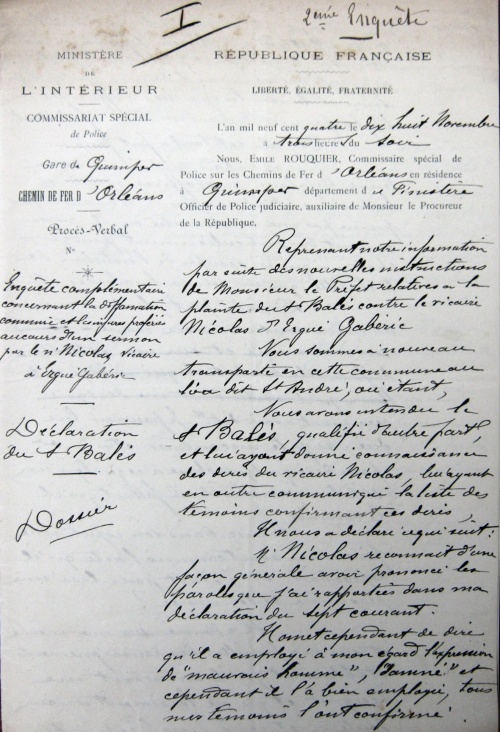 I
2eme Enquête
MINISTÈRE
DE
L'INTÉRIEUR
COMMISSARIAT SPÉCIAL
de Police
Gare de Quimper
CHEMIN DE FER D'Orléans
Procès-Verbal
N°
Enquête complémentaire
concernant la diffamation
commise et les injures proférées
au cours d'un sermon
par le sr Nicolas, vicaire
à Ergué Gabéric
Déclaration
du St Balés
Dossier
RÉPUBLIQUE FRANÇAISE
LIBERTÉ, ÉGALITÉ, FRATERNITÉ
L'an mil neuf cent quatre le dix huit Novembre
à trois heures du soir
Nous, EMILE ROUQUIER, Commissaire spécial de
Police sur les Chemins de Fer d'Orléans en résidence
à Quimper département du Finistère
Officier de Police judiciaire, auxiliaire de Monsieur le Procureur
de la République.
Reprenant notre information
par suite des nouvelles instructions
de Monsieur le Préfet relatives à la
plainte du St Balés contre le vicaire
Nicolas d'Ergué Gabéric
Nous sommes à nouveau
transporté en cette commune au
lieu dit St André, où étant,
Nous avons entendu le
St Balés, qualifié d'autre part,
et lui ayant donné connaissance
des dires du vicaire Nicolas, lui ayant
en outre communiqué la liste des
témoins confirmant ces dires,
Il nous a déclaré ce qui suit:
Mr Nicolas reconnait d'une
façon générale avoir prononcé les
paroles que j'ai rapportées dans ma
déclaration du sept courant.
Il omet cependant de dire
qu'il a employé à mon égard l'expression
de "mauvais homme", "damné" et
cependant il l'a bien employé, tous
mes témoins l'ont confirmé.